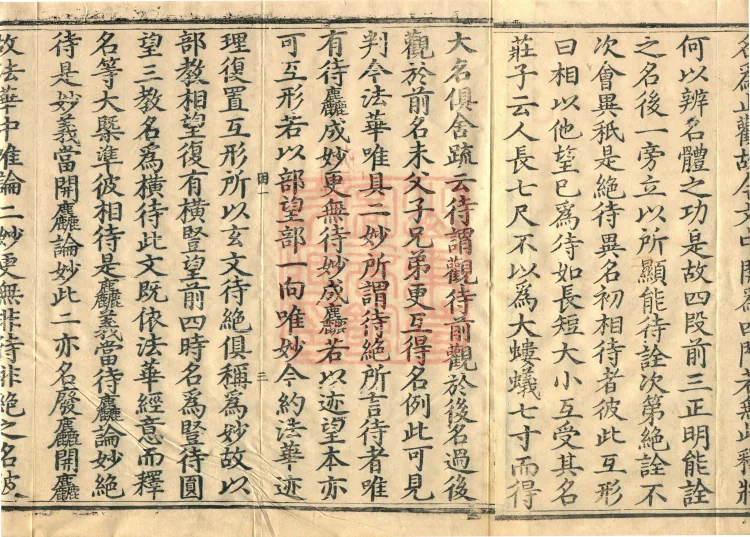 名為止觀故今文中開為四門若無此釋將
何以辨名體之功是故四段前三正明能詮
之名後一旁立以所顯能待詮次第絕詮不
次會異秖是絕待異名初相待者彼此互形
曰相以他望已為待如長短大小互受其名
莊子云人長七尺不以為大螻蟻七寸而得
大名俱舍疏云待謂觀待前觀於後名過後
觀於前名未父子兄弟更互得名例此可見
判今法華唯具二妙所謂待絕所言待者唯
有待麤成妙更無待妙成麤若以迹望本亦
可互形若以部望部一向唯妙今約法華迹
三
理復置互形所以玄文待絕俱稱為妙故以
部教相望復有橫豎望前四時名為豎待圓
望三教名為橫待此文既依法華經意而釋
名等大槩準彼相待是麤義當待麤論妙絕
待是妙義當開麤論妙此二亦名廢麤開麤
故法華中唯論二妙更無非待非絕之名故